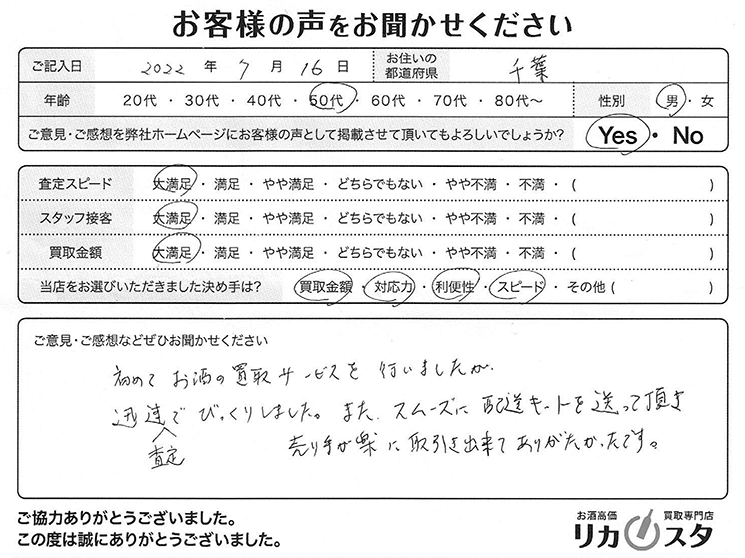 お客様の声をお聞かせください
ご記入日 2022 年 7 月 16 日 お住いの都道府県 千葉
年齢 20代 ・ 30代 ・ 40代 ・ 50代 ・ 60代 ・ 70代 ・ 80代〜 性別 男 ・ 女
ご意見・ご感想を弊社ホームページにお客様の声として掲載させて頂いてもよろしいでしょうか? Yes ・ No
査定スピード 大満足 ・ 満足 ・ やや満足 ・ どちらでもない ・ やや不満 ・ 不満 ・ ( )
スタッフ接客 大満足 ・ 満足 ・ やや満足 ・ どちらでもない ・ やや不満 ・ 不満 ・ ( )
買取金額 大満足 ・ 満足 ・ やや満足 ・ どちらでもない ・ やや不満 ・ 不満 ・ ( )
当店をお選びいただきました決め手は? 買取金額 ・ 対応力 ・ 利便性 ・ スピード ・ その他 ( )
ご意見・ご感想などぜひお聞かせください
初めてお酒の買取サービスを行いましたが、
迅速でびっくりしました。また、スムーズに配送キットを送って頂き
査定
売り手が楽に取引き出来てありがたかったです。
ご協力ありがとうございました。
この度は誠にありがとうございました。
お酒高価 買取専門店
リカスタ